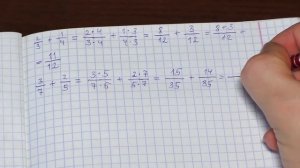 2/3 + 1/4 = 2·4/3·4 + 1·3/4·3 = 8/12 + 3/12 = 8+3/12 =
= 11/12
3/7 + 2/5 = 3·5/7·5 + 2·7/5·7 = 15/35 + 14/35 =